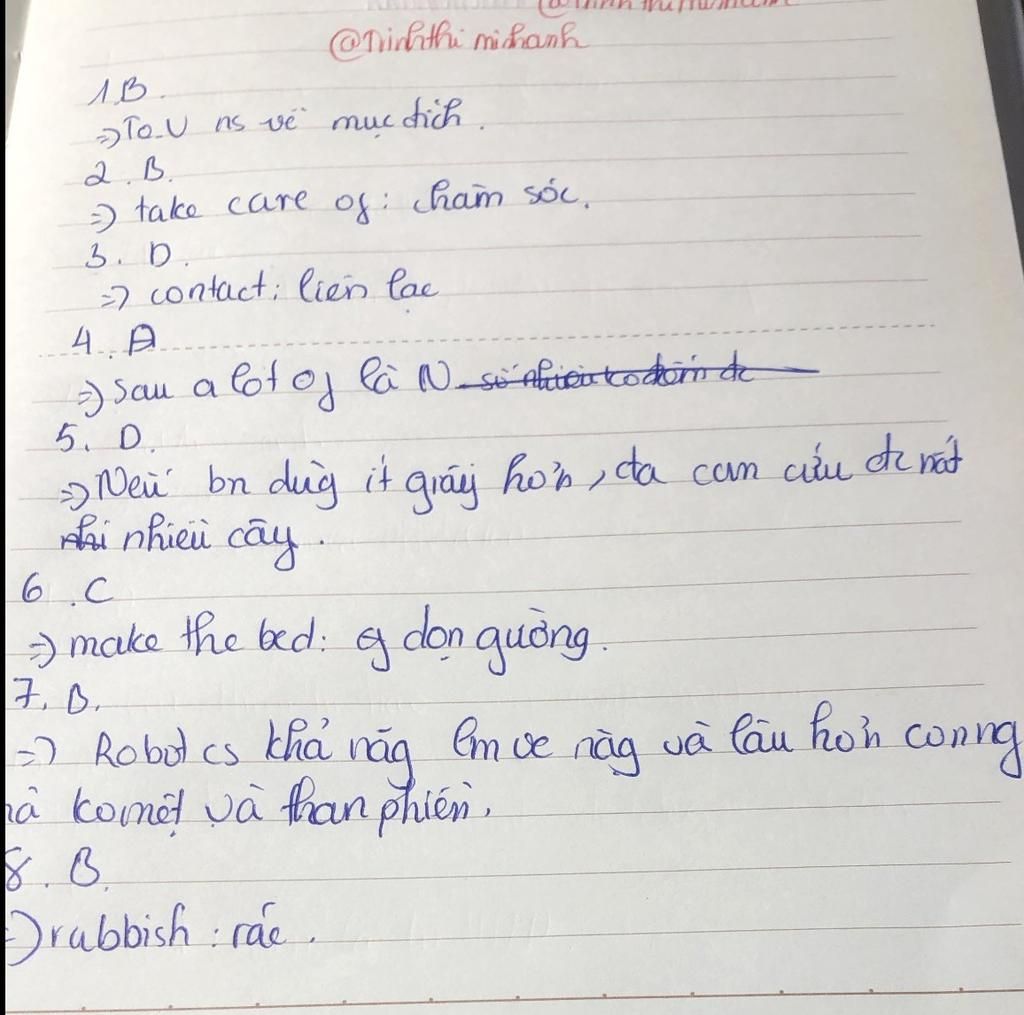 @Dinhthi minhanh
1B.
=> To-V ns về mục đích.
2. B.
=> take care of: chăm sóc.
3. D.
=> contact: liên lạc
4. A
=> sau a lot of là N
5. D.
=> Nếu bn dùg ít giấy hơn, ta can cứu đc rất
nhiều cây.
6. C
=> make the bed: dọn giường.
7. B.
=> Robot cs khả năg lm vc nặg và lâu hơn conng
mà ko mệt và than phiền.
8. B.
=> rubbish: rác.